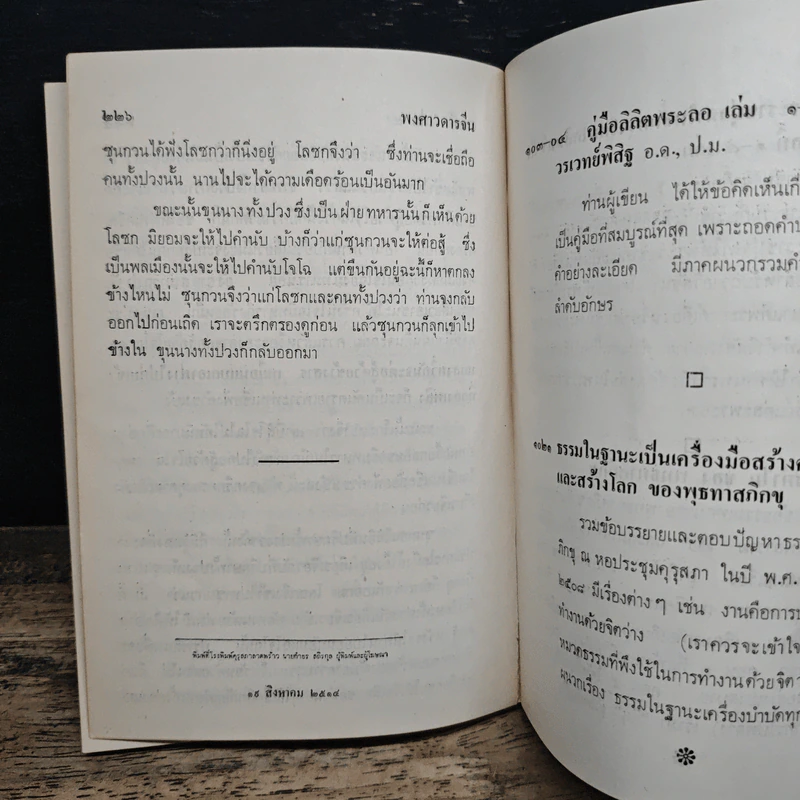 ๒๒๖ พงศาวดารจีน
ซุนกวนได้ฟังโลซกว่าก็นิ่งอยู่ โลซกจึงว่า ซึ่งท่านจะเชื่อถือ
คนทั้งปวงนั้น นานไปจะได้ความเดือดร้อนเป็นอันมาก
ขณะนั้นขุนนางทั้งปวงซึ่งเป็นฝ่ายทหารนั้นก็เห็นด้วย
โลซก มิยอมจะให้ไปคำนับ บ้างก็ว่าแก่ซุนกวนจะให้ต่อสู้ ซึ่ง
เป็นพลเมืองนั้นจะให้ไปคำนับโจโฉ แต่ขึ้นกันอยู่ฉะนี้ก็หาตกลง
ข้างไหนไม่ ซุนกวนจึงว่าแก่โลซกและคนทั้งปวงว่า ท่านจงกลับ
ออกไปก่อนเถิด เราจะตรึกตรองดูก่อน แล้วซุนกวนก็ลุกเข้าไป
ข้างใน ขุนนางทั้งปวงก็กลับออกมา
พิมพ์ที่โรงพิมพ์คุรุสภาลาดพร้าว นายกำธร สถิรกุล ผู้พิมพ์และผู้โฆษณา
๑๙ สิงหาคม ๒๕๑๔
๑๐๓-๐๔ คู่มือลิลิตพระลอ เล่ม ๑
วรเวทย์พิสิฐ อ.ด., ป.ม.
ท่านผู้เขียน ได้ให้ข้อคิดเห็นเกี่
เป็นคู่มือที่สมบูรณ์ที่สุด เพราะถอดคำป
คำอย่างละเอียด มีภาคผนวกรวมคำ
ลำดับอักษร
๑๐๒๑ ธรรมในฐานะเป็นเครื่องมือสร้างค
และสร้างโลก ของพุทธทาสภิกขุ
รวมข้อบรรยายและตอบปัญหาธร
ภิกขุ ณ หอประชุมคุรุสภา ในปี พ.ศ.
๒๕๐๘ มีเรื่องต่าง ๆ เช่น งานคือการป
ทำงานด้วยจิตว่าง (เราควรจะเข้าใจ
หมวดธรรมที่พึงใช้ในการทำงานด้วยจิตว
ผนวกเรื่อง ธรรมในฐานะเครื่องบำบัดทุก